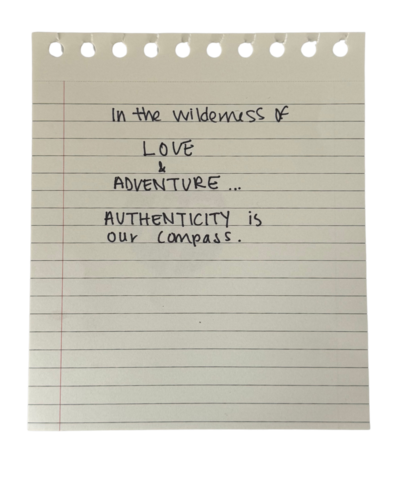 In the wilderness of
LOVE
&
ADVENTURE ...
AUTHENTICITY is
our compass.